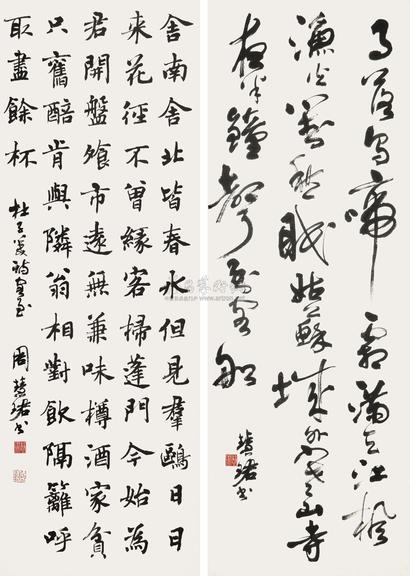 月落烏啼霜滿天江楓
漁火對愁眠姑蘇城外寒山寺
夜半鐘聲到客船
慧珺书
舍南舍北皆春水但見羣鷗日日
来花徑不曾緣客掃蓬門今始為
君開盤飱市遠無兼味樽酒家貧
只舊醅肯與隣翁相對飲隔籬呼
取盡餘杯
杜子美詩客至 周慧珺书